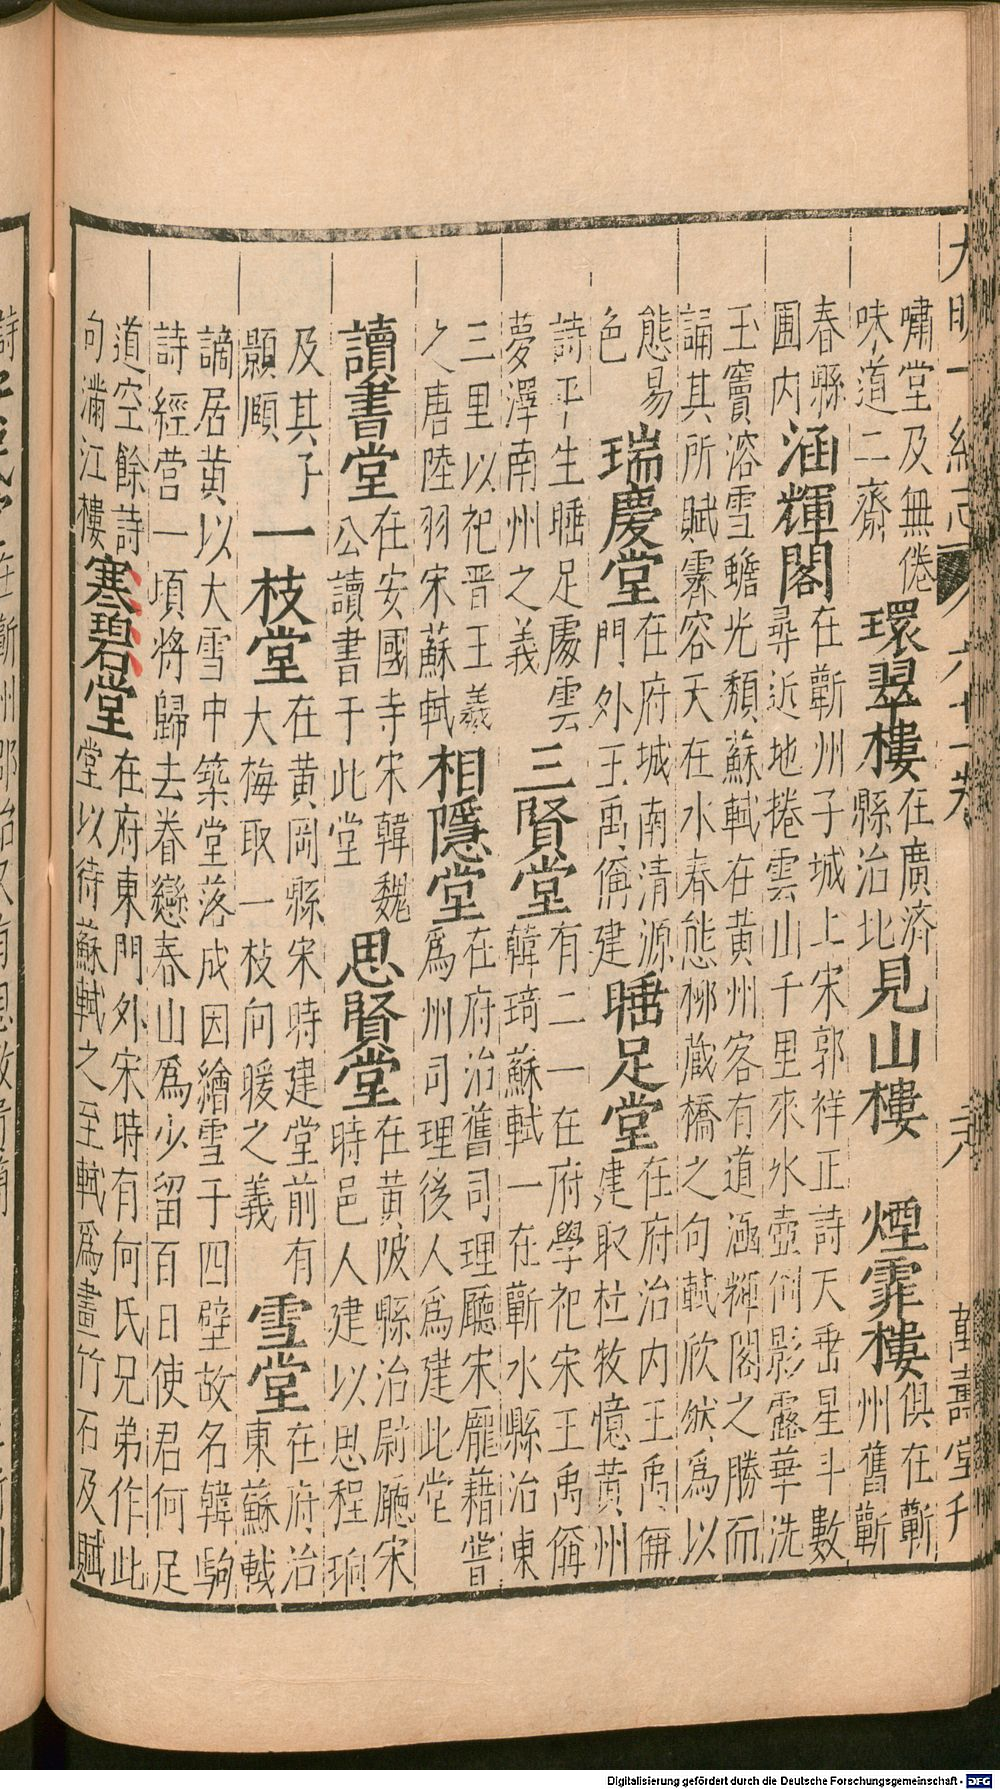 大明一統志
萬壽堂刊
嘯堂及無倦
味道二齋
環翠樓
在廣濟
縣治北
見山樓
煙霏樓
俱在蘄
州舊蘄
春縣
圃内
涵輝閣
在蘄州子城上宋郭祥正詩天垂星斗數
尋近地捲雲山千里來水壺倒影露華洗
玉竇溶雪蟾光頽蘇軾在黄州客有道涵輝閣之勝而
誦其所賦霽容天在水春態桞蔵橋之句軾欣然為以
態易
色
瑞慶堂
在府城南清源
門外王禹偁建
睡足堂
在府治内王禹偁
建取杜牧憶黄州
詩平生睡足處雲
夢澤南州之義
三賢堂
有二一在府學祀宋王禹偁
韓琦蘇軾一在蘄水縣治東
三里以祀晉王羲
之唐陸羽宋蘇軾
相隱堂
在府治舊司理廳宋龎籍嘗
爲州司理後人爲建此堂
讀書堂
在安國寺宋韓魏
公讀書于此堂
思賢堂
在黄陂縣治尉廳宋
時邑人建以思程珦
及其子
顥頤
一枝堂
在黄岡縣宋時建堂前有
大梅取一枝向暖之義
雪堂
在府治
東蘇軾
謫居黄以大雪中築堂落成因繪雪于四壁故名韓駒
詩經營一項將歸去眷戀春山爲少留百日使君何足
道空餘詩
句滿江樓
寒碧堂
在府東門外宋時有何氏兄弟作此
堂以待蘇軾之至軾爲畫竹石及賦
Digitalisierung gefördert durch die Deutsche Forschungsgemeinschaft - DFG